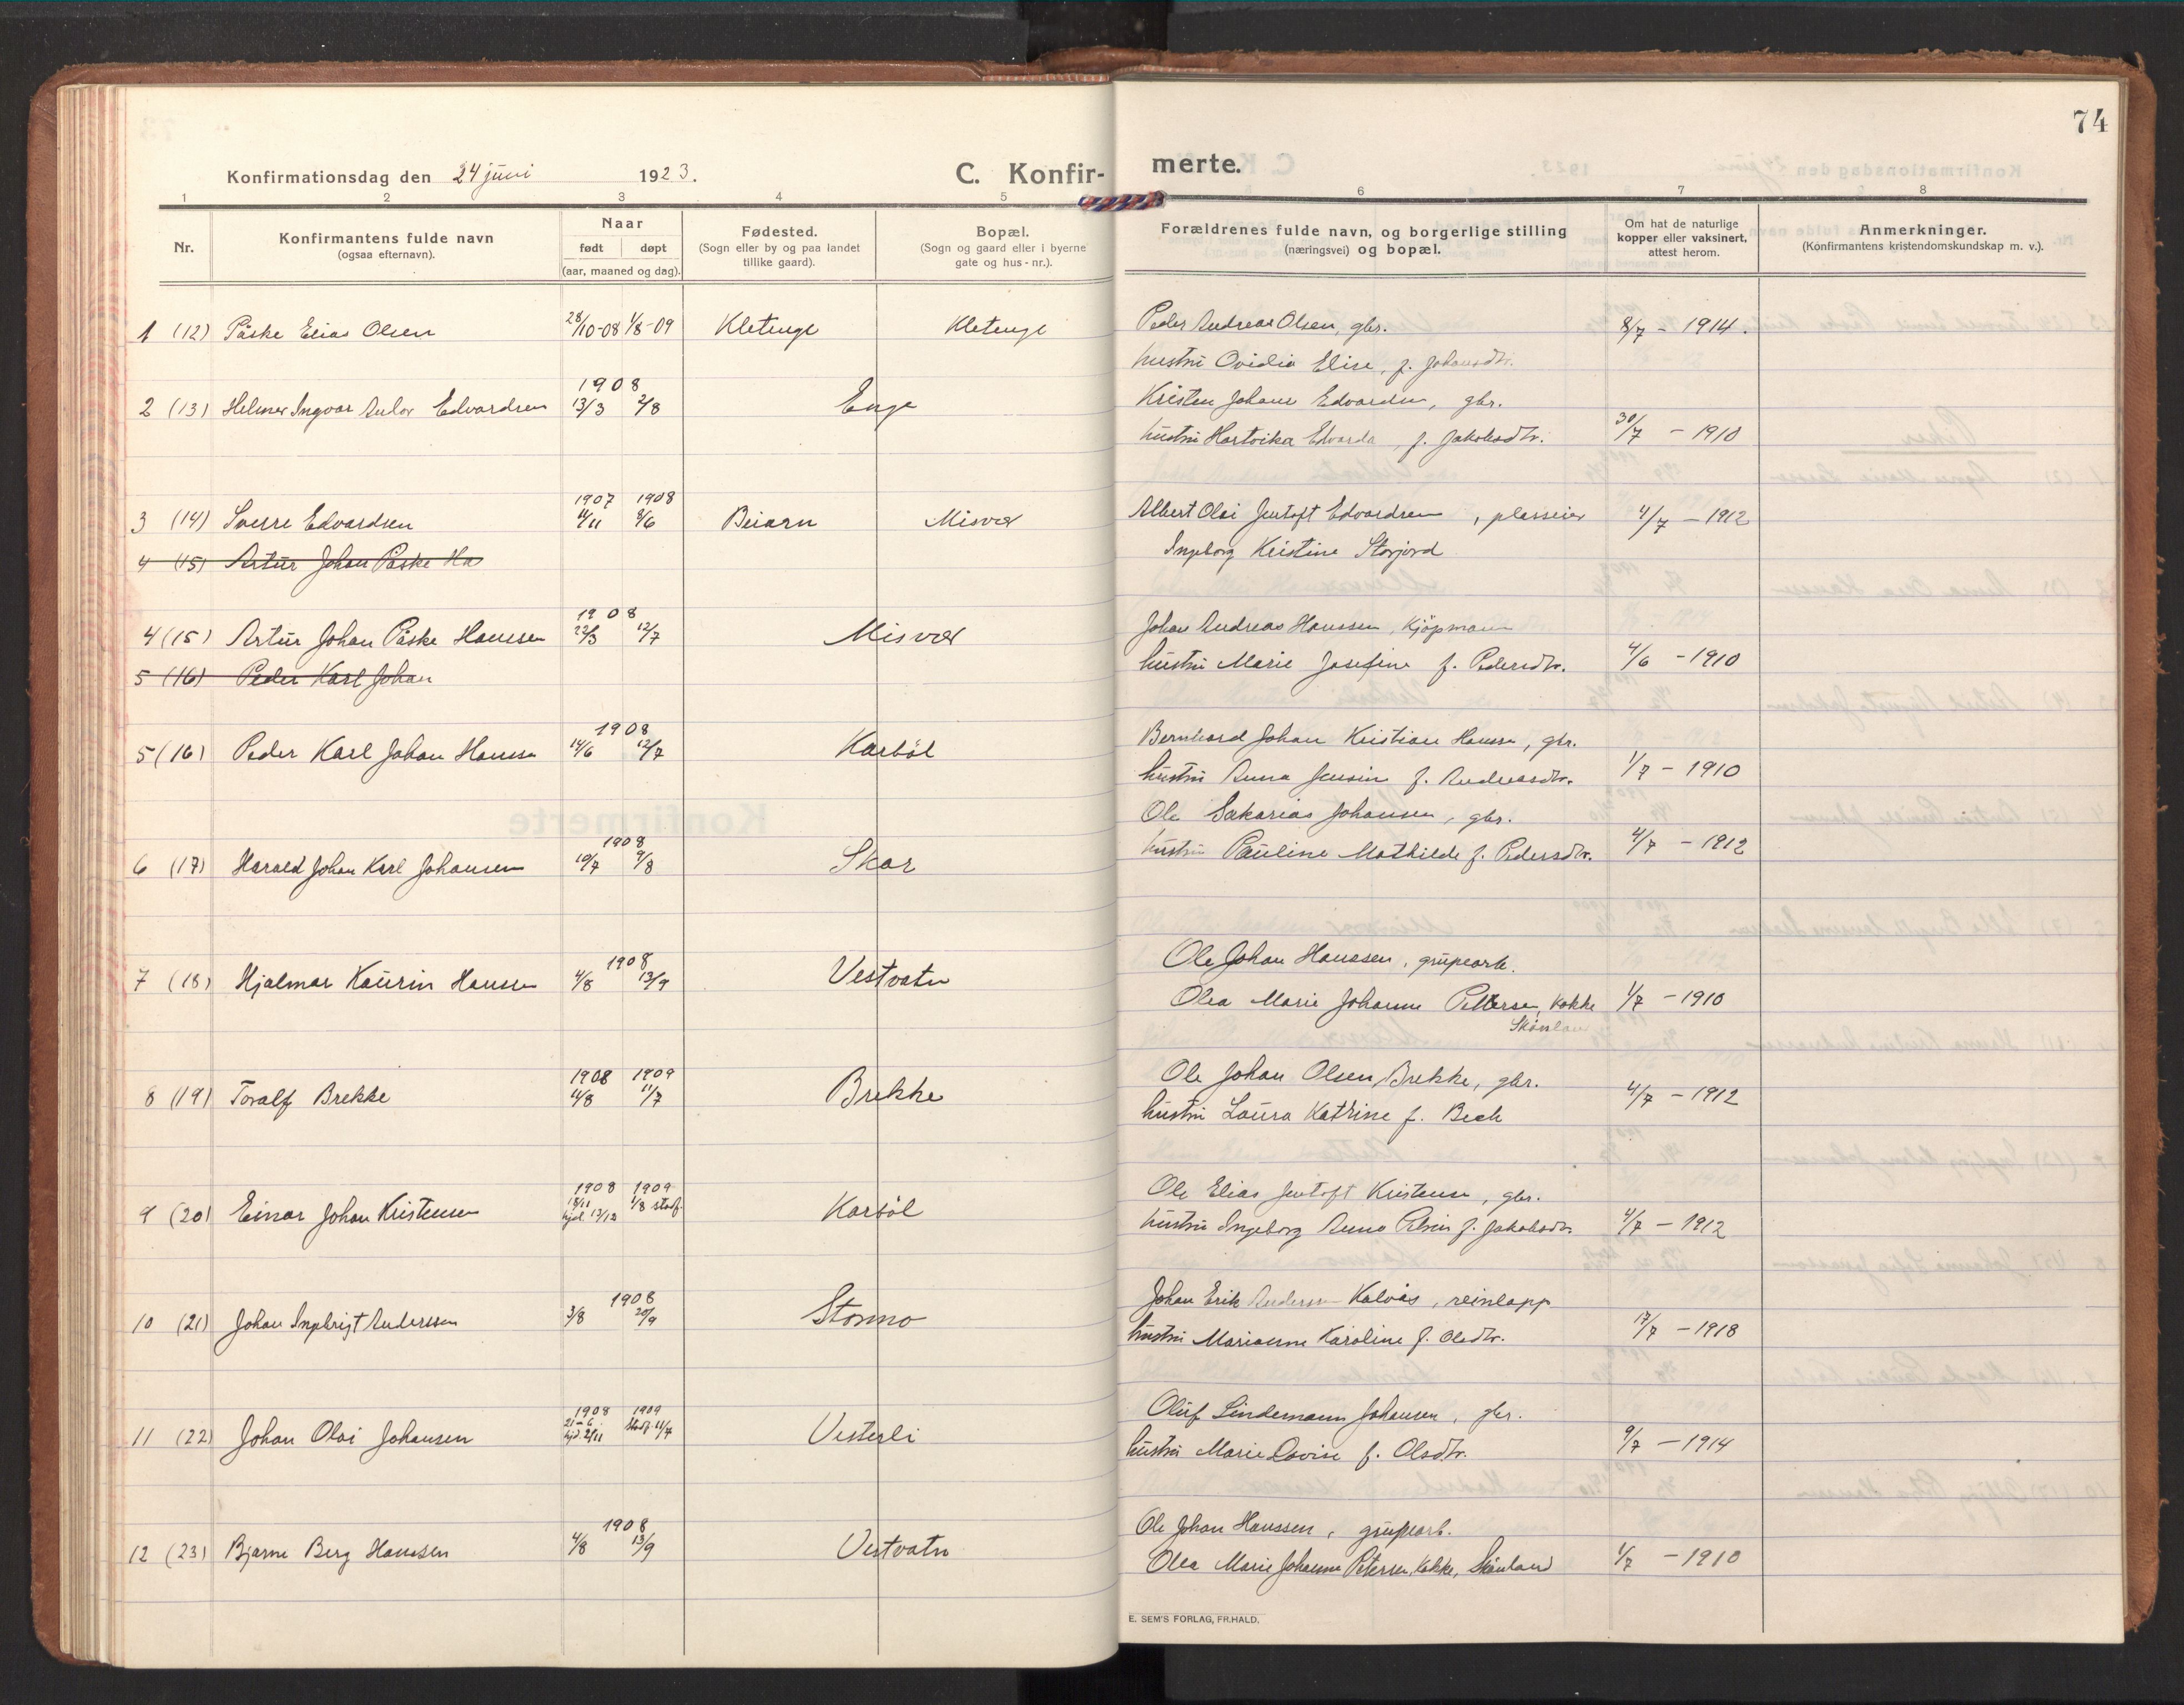 74
Konfirmationsdag den 24 juni 1923.
C. Konfir-
merte.
1 2 3 4 5 6 7 8
Nr.
Konfirmantens fulde navn
(ogsaa efternavn).
Naar
født døpt
(aar, maaned og dag).
Fødested.
(Sogn eller by og paa landet
tillike gaard).
Bopæl.
(Sogn og gaard eller i byerne
gate og hus-nr.).
Forældrenes fulde navn, og borgerlige stilling
(næringsvei) og bopæl.
Om hat de naturlige
kopper eller vaksinert,
attest herom.
Anmerkninger.
(Konfirmantens kristendomskundskap m. v.).
1 (12) Påske Elias Olsen 28/10-08 1/8-09 Kletenge Kletenge Peder Andreas Olsen, gbr. 8/7 - 1914.
hustru Ovidia Elise, f. Johansdtr.
1908
2 (13) Helmer Ingvar Andor Edvardsen 13/3 2/8 Enge Kristen Johan Edvardsen, gbr.
hustru Hartvika Edvarda, f. Jakobsdtr. 30/7 - 1910
1907 1908
3 (14) Sverre Edvardsen 11/11 8/6 Beiarn Misvær Albert Olai Jentoft Edvardsen, plasseier 4/7 - 1912
4 (15) Artur Johan Påske Ha
Ingeborg Kristine Storjord
1908
4 (15) Artur Johan Påske Hanssen 22/3 12/7 Misvær Johan Andreas Hanssen, kjøpmann
hustru Marie Josefine f. Pedersdtr. 4/6 - 1910
5 (16) Peder Karl Johan
1908
5 (16) Peder Karl Johan Hanssen 14/6 12/7 Karbøl Bernhard Johan Kristian Hanssen, gbr.
hustru Anna Jensine f. Andreasdtr. 1/7 - 1910
1908
6 (17) Harald Johan Karl Johansen 10/7 9/8 Skar Ole Sakarias Johansen, gbr.
hustru Pauline Mathilde f. Pedersdtr. 4/7 - 1912
1908
7 (18) Hjalmar Kaurin Hanssen 4/8 13/9 Vestvatn Ole Johan Hanssen, grupearb.
Olea Marie Johanne Pettersen, kokke 1/7 - 1910
Skånland
1908 1909
8 (19) Toralf Brekke 11/8 11/7 Brekke Ole Johan Olsen Brekke, gbr.
hustru Laura Katrine f. Beck 4/7 - 1912
1908 1909
9 (20) Einar Johan Kristensen 18/11 1/8 stadf. Karbøl Ole Elias Jentoft Kristensen, gbr.
hjd. 13/12
hustru Ingeborg Anna f. Jakobsdtr. 4/7 - 1912
1908
10 (21) Johan Ingebrigt Anderssen 3/8 20/9 Stormo Johan Erik Anderssen Kalvås, reinlapp
hustru Marianne Karoline f. Olsdtr. 17/7 - 1918
1908 1909
11 (22) Johan Olai Johansen 21-6 stadf. 11/7 Vesterli Oluf Lindemann Johansen, gbr.
hjd. 2/11
hustru Marie Lovise f. Olsdtr. 9/7 - 1914
1908
12 (23) Bjarne Berg Hanssen 4/8 13/9 Vestvatn Ole Johan Hanssen, grupearb.
Olea Marie Johanne Petersen, kokke, Skånland 1/7 - 1910
E. SEM'S FORLAG, FR.HALD.